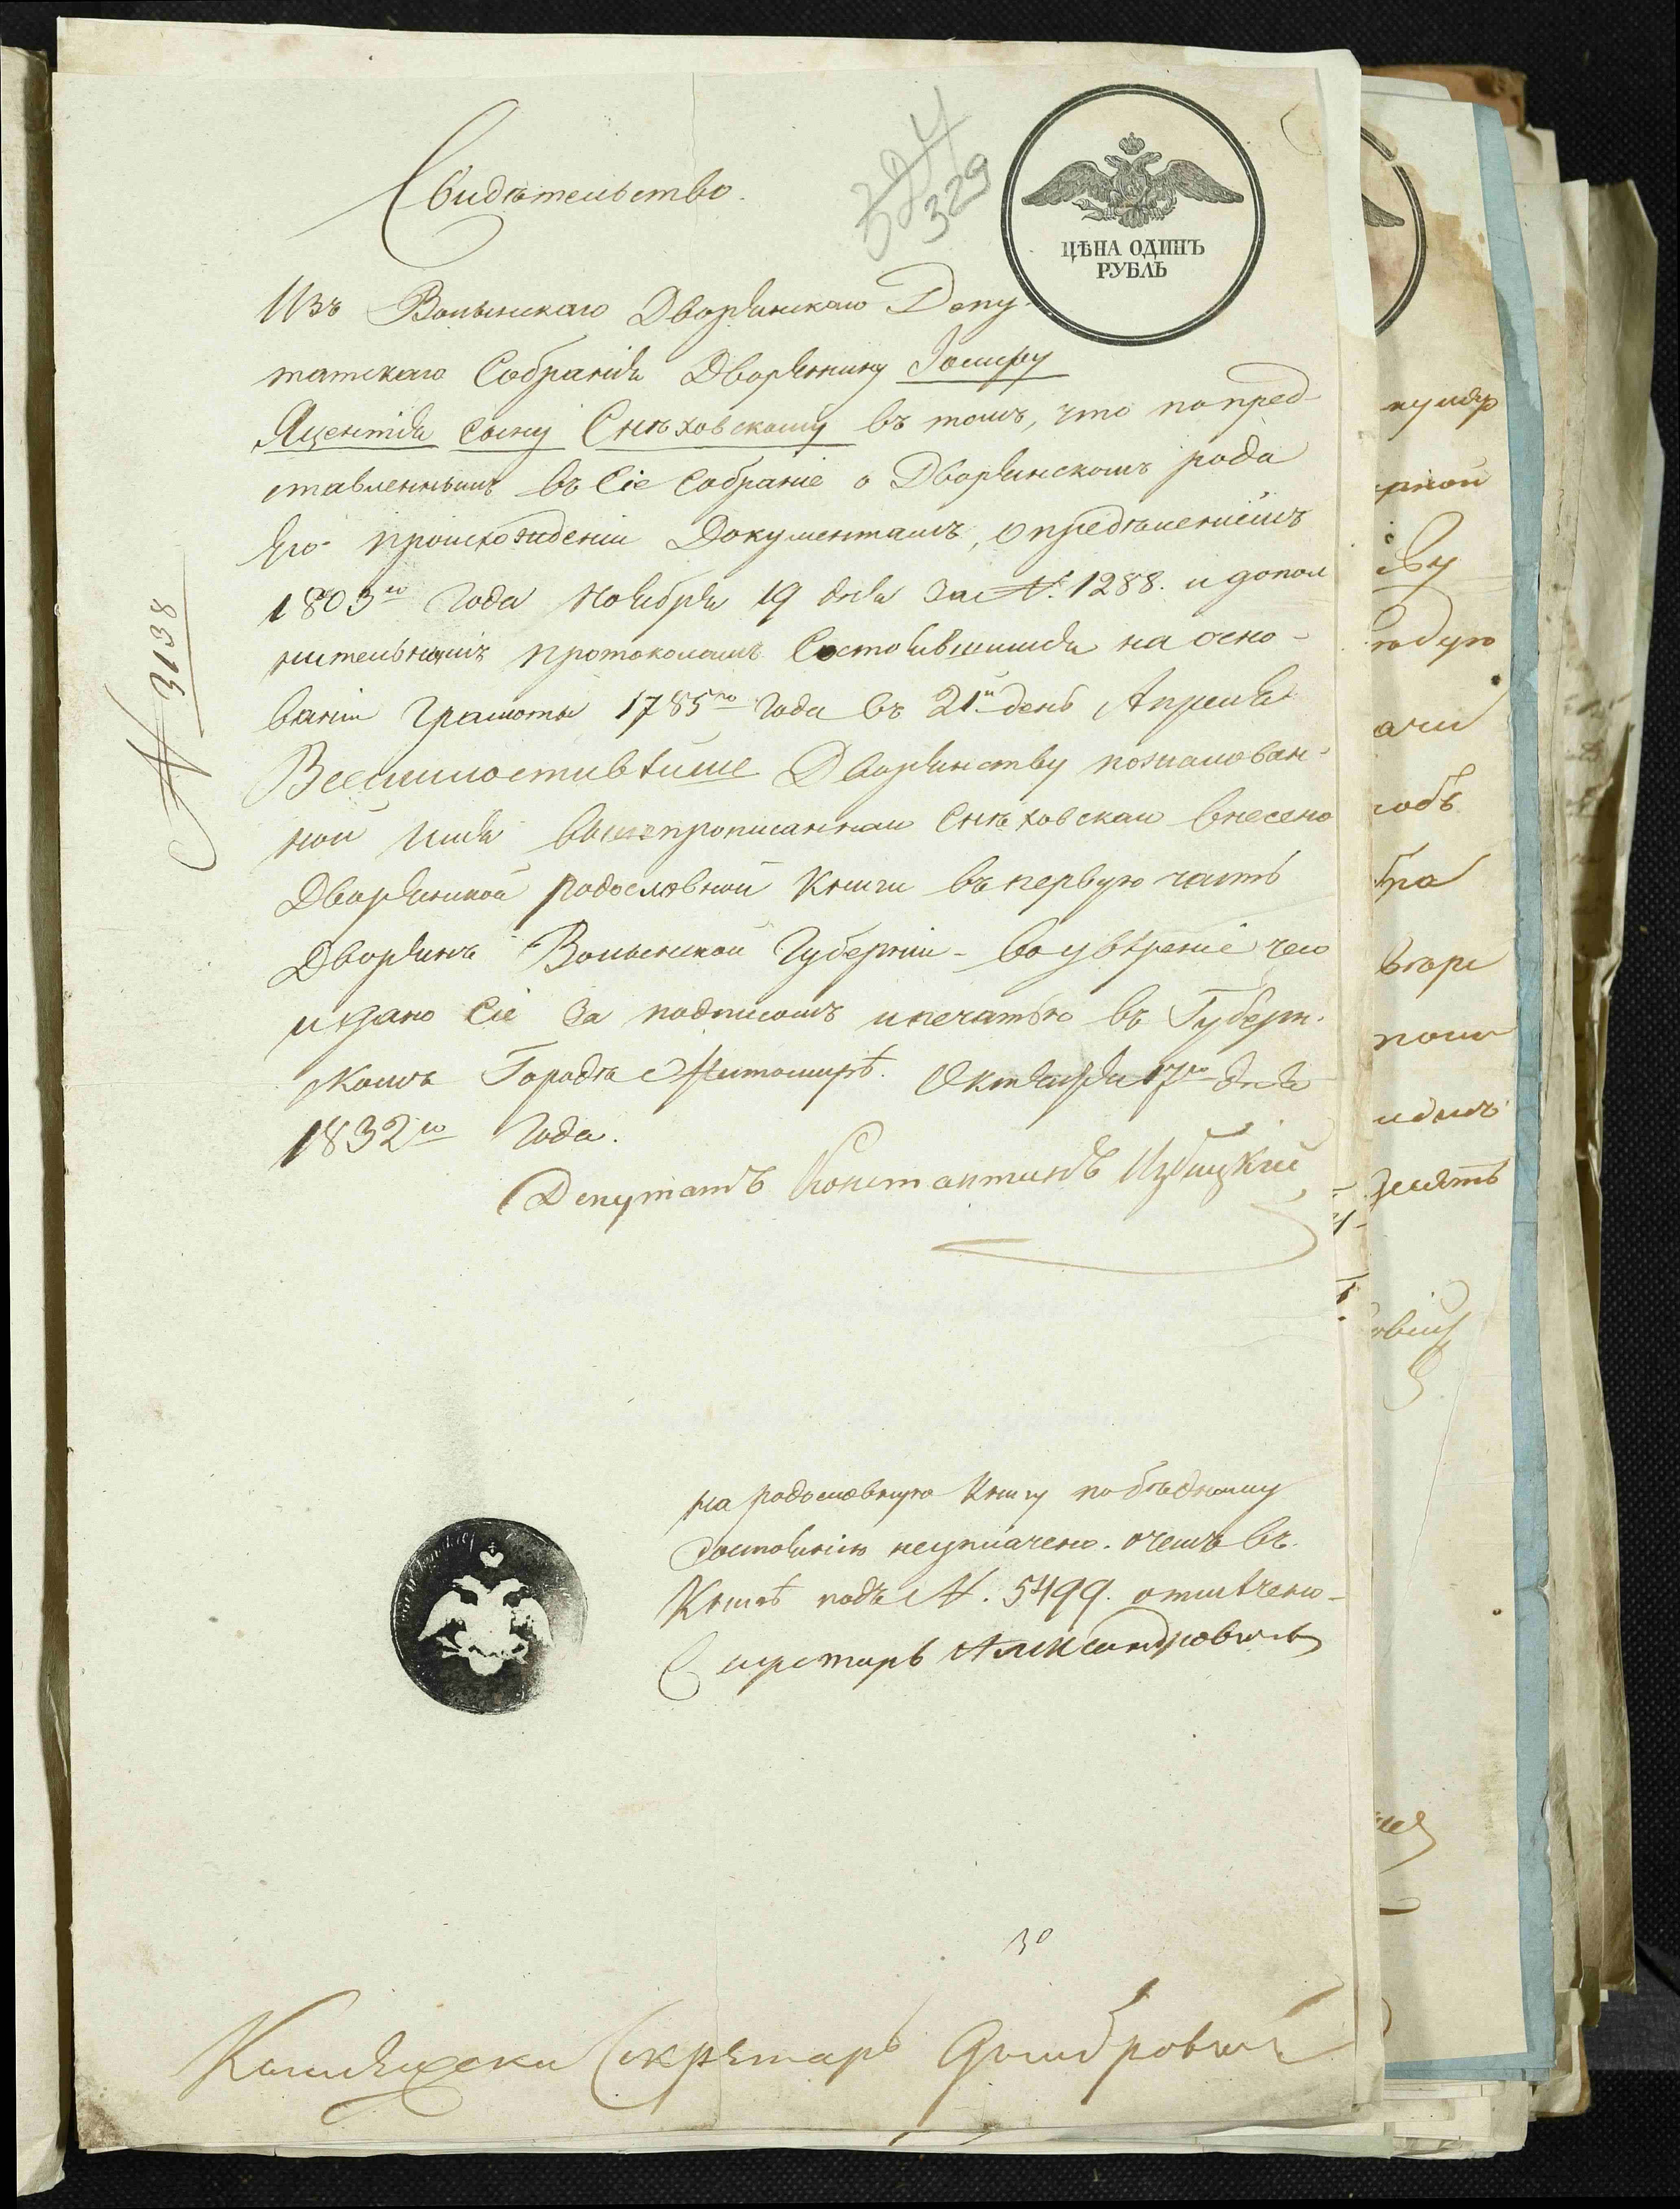 324
329
ЦѢНА ОДИНЪ
РУБЛЬ
Свидѣтельство.
Изъ Волынскаго Дворянскаго Депу-
татскаго Собранія Дворянину Іосифу
Яцентія сыну Снѣховскому въ томъ, что по пред-
ставленнымъ въ Сіе Собраніе о Дворянскомъ рода
Его происхожденіи Документамъ, опредѣленіемъ
1803го Года Ноября 19 дня за №. 1288. и допол
нительнымъ протоколомъ Состоявшимися на осно-
ваніи Грамоты 1785го Года въ 21й день Апреля
Всемилостивѣйше Дворянству пожалован-
ной имя вышепрописаннаго Снѣховскаго внесено
Дворянской родословной Книги въ первую часть
Дворянъ Волынской Губерніи - во увѣреніе чего
и дано Сіе за подписомъ и печатью въ Губерн-
скомъ Городѣ Житомирѣ. Октября 17го дня
1832го Года.
Депутатъ Константинъ Избицкій
№ 3138
на родословную Книгу по бѣдному
состоянію неуплачено. о чемъ въ
Книгѣ подъ №. 5499. отмѣчено-
Секретарь Александровичъ
30
Секретарь